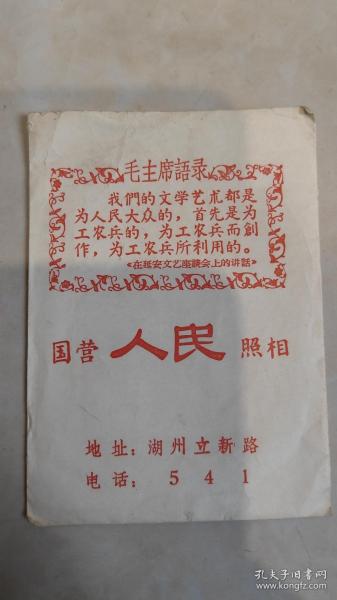 毛主席語录
我們的文学艺朮都是
为人民大众的，首先是为
工农兵的，为工农兵而創
作，为工农兵所利用的。
《在延安文艺座談会上的讲話》
国营 人民 照相
地址：湖州立新路
电话：541
孔夫子旧书网